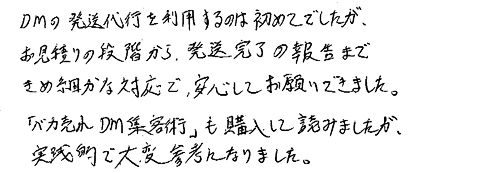 DMの発送代行を利用するのは初めてでしたが、
お見積りの段階から、発送完了の報告まで
きめ細かな対応で、安心してお願いできました。
「バカ売れDM集客術」も購入して読みましたが、
実践的で大変参考になりました。